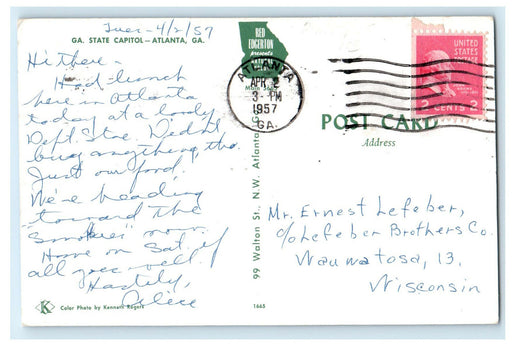 Tues - 4/2/57
GA. STATE CAPITOL — ATLANTA, GA.
Hi there -
Had lunch
here in Atlanta
today at a lovely
Dept. Stre. Didn't
buy anything, tho.
Just our food.
We're heading
toward the
"Smokies" now.
Home on Sat. if
all goes well.
Hastily,
Alice
K
Color Photo by Kenneth Rogers
1665
RED
EDGERTON
presents
NATURAL
COLOR
99 Walton St., N.W. Atlanta, G
ATLANTA
APR 2
3 - PM
1957
GA.
UNITED
STATES
POSTAGE
2 CENTS 2
POST CARD
Address
Mr. Ernest Lefeber,
c/o Lefeber Brothers Co.
Wauwatosa, 13,
Wisconsin